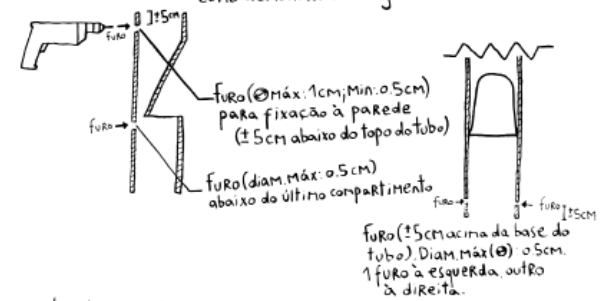 ±5cm
FURO
FURO (Ø Máx: 1cm; Min: 0.5cm)
para fixação à parede
(± 5cm abaixo do topo do tubo)
FURO
FURO (diam. Máx: 0.5cm)
abaixo do último compartimento
FURO
FURO
±5cm
FURO (±5cm acima da base do
tubo). Diam. máx (Ø): 0.5cm.
1 FURO à esquerda, outro
à direita.